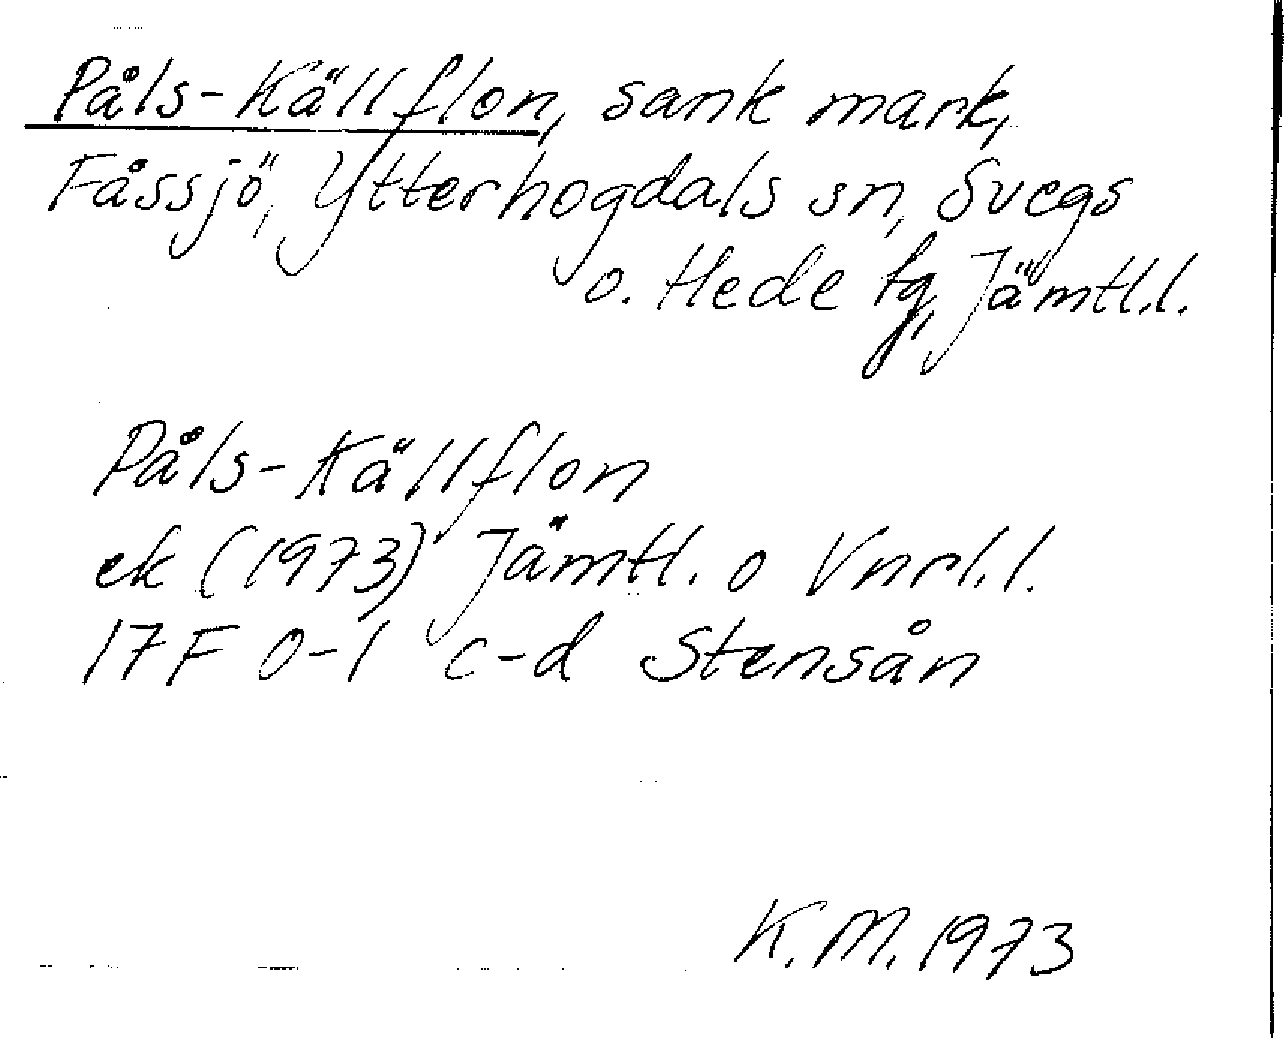 Påls-Källflon, sank mark,
Fåssjö, Ytterhogdals sn, Svegs
o. Hede tg, Jämtl.l.
Påls-Källflon
ek (1973) Jämtl. o Vnrl.l.
17F 0-1 c-d Stensån
K.M. 1973